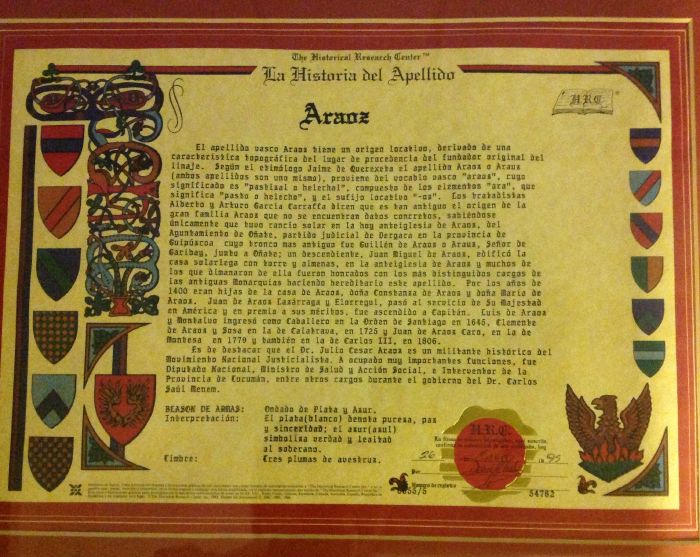 The Historical Research Center™
La Historia del Apellido
H.R.C.
Araoz
El apellido vasco Araoz tiene un origen locativo, derivado de una
característica topográfica del lugar de procedencia del fundador original del
linaje. Según el etimólogo Jaime de Querexeta el apellido Araoz o Arauz
(ambos apellidos son uno mismo), proviene del vocablo vasco "araoz", cuyo
significado es "pastizal o helechal", compuesto de los elementos "ara", que
significa "pasto o helecho", y el sufijo locativo "-oz". Los tratadistas
Alberto y Arturo García Carraffa dicen que es tan antiguo el origen de la
gran familia Araoz que no se encuentran datos concretos, sabiéndose
únicamente que tuvo rancio solar en la hoy anteiglesia de Araoz, del
Ayuntamiento de Oñate, partido judicial de Vergara en la provincia de
Guipúscoa cuyo tronco mas antiguo fue Guillén de Araoz o Arauz, Señor de
Garibay, junto a Oñate; un descendiente, Juan Miguel de Araoz, edificó la
casa solariega con torre y almenas, en la anteiglesia de Araoz y muchos de
los que dimanaron de ella fueron honrados con los más distinguidos cargos de
las antiguas Monarquías haciendo hereditario este apellido. Por los años de
1400 eran hijas de la casa de Araoz, doña Constanza de Araoz y doña María de
Araoz. Juan de Araoz Lazárraga y Elorregui, pasó al servicio de Su Majestad
en América y en premio a sus méritos, fue ascendido a Capitán. Luis de Araoz
y Montalvo ingresó como Caballero en la Orden de Santiago en 1645, Clemente
de Araoz y Sosa en la de Calatrava, en 1725 y Juan de Araoz Caro, en la de
Montesa en 1779 y también en la de Carlos III, en 1806.
Es de destacar que el Dr. Julio Cesar Araoz es un militante histórico del
Movimiento Nacional Justicialista. A ocupado muy importantes funciones, fue
Diputado Nacional, Ministro de Salud y Acción Social, e Interventor de la
Provincia de Tucumán, entre otros cargos durante el gobierno del Dr. Carlos
Saúl Menem.
BLASON DE ARMAS: Ondado de Plata y Azur.
Interpretación: El plata(blanco) denota pureza, paz
y sinceridad; el azur(azul)
simboliza verdad y lealtad
al soberano.
Cimbre: Tres plumas de avestruz.
H.R.C.
26
19 95
Por
Número de registro
54782